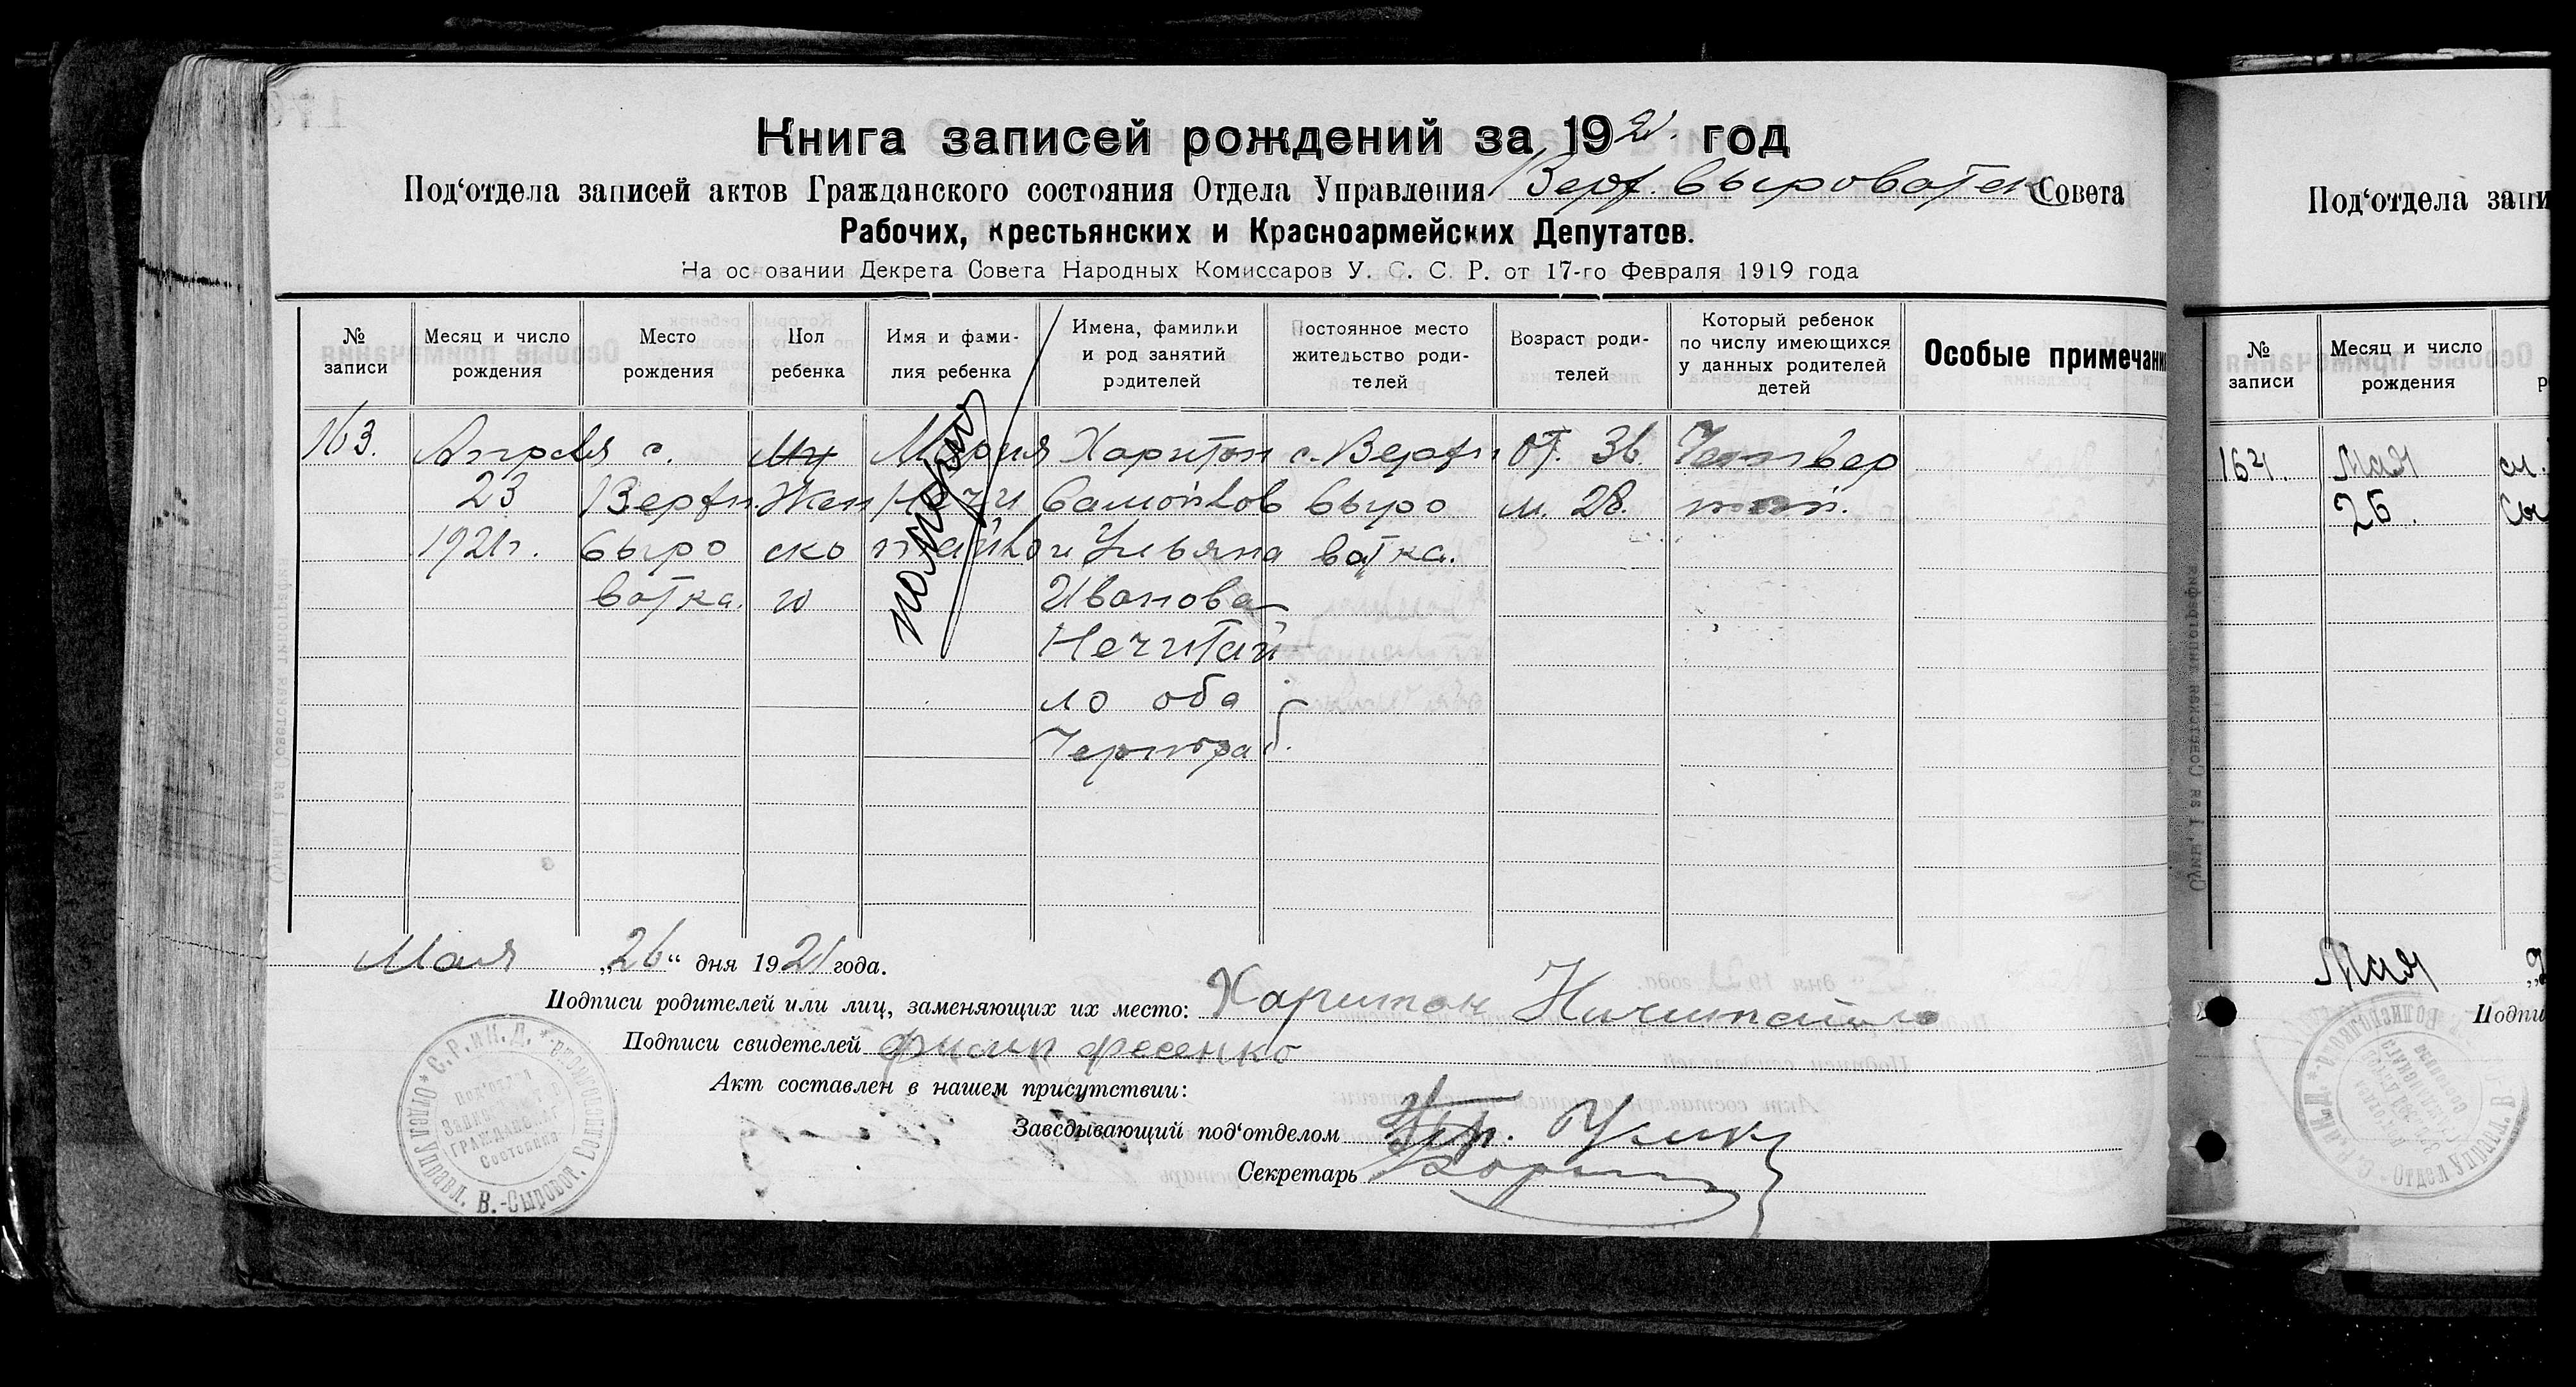 Книга записей рождений за 1921. год
Под‘отдела записей актов Гражданского состояния Отдела Управления Верх. Сыроватск Совета
Рабочих, Крестьянских и Красноармейских Депутатов.
На основании Декрета Совета Народных Комиссаров У. С. С. Р. от 17-го Февраля 1919 года
№ записи
Месяц и число рождения
Место рождения
Пол ребенка
Имя и фами-
лия ребенка
Имена, фамилии
и род занятий
родителей
Постоянное место
жительство роди-
телей
Возраст роди-
телей
Который ребенок
по числу имеющихся
у данных родителей
детей
Особые примечани
163.
Апреля
23
1921г.
с.
Верхн.
Сыро
ватка.
Жен
ско
го
Мария
Нечи
тайло
Харитон
Самойлов
и Ульяна
Иванова
Нечитай
ло оба
Чернораб.
с. Верхн.
Сыро
ватка.
от. 36.
м. 28.
Четвер
тый.
Мая „26“ дня 1921 года.
Подписи родителей или лиц, заменяющих их место: Харитон Ничитайло
Подписи свидетелей Филип Фесенко
Акт составлен в нашем присутствии:
Заведывающий под‘отделом
Секретарь
Отдел Управл. В.-Сыроват.
С.Р.и К.Д.
Под‘отдел
Записи
Гражданског
Состояния
Под‘отдела запи
№ записи
Месяц и число рождения
164.
Мая
25.
сл.
Сы
Мая
Подпи